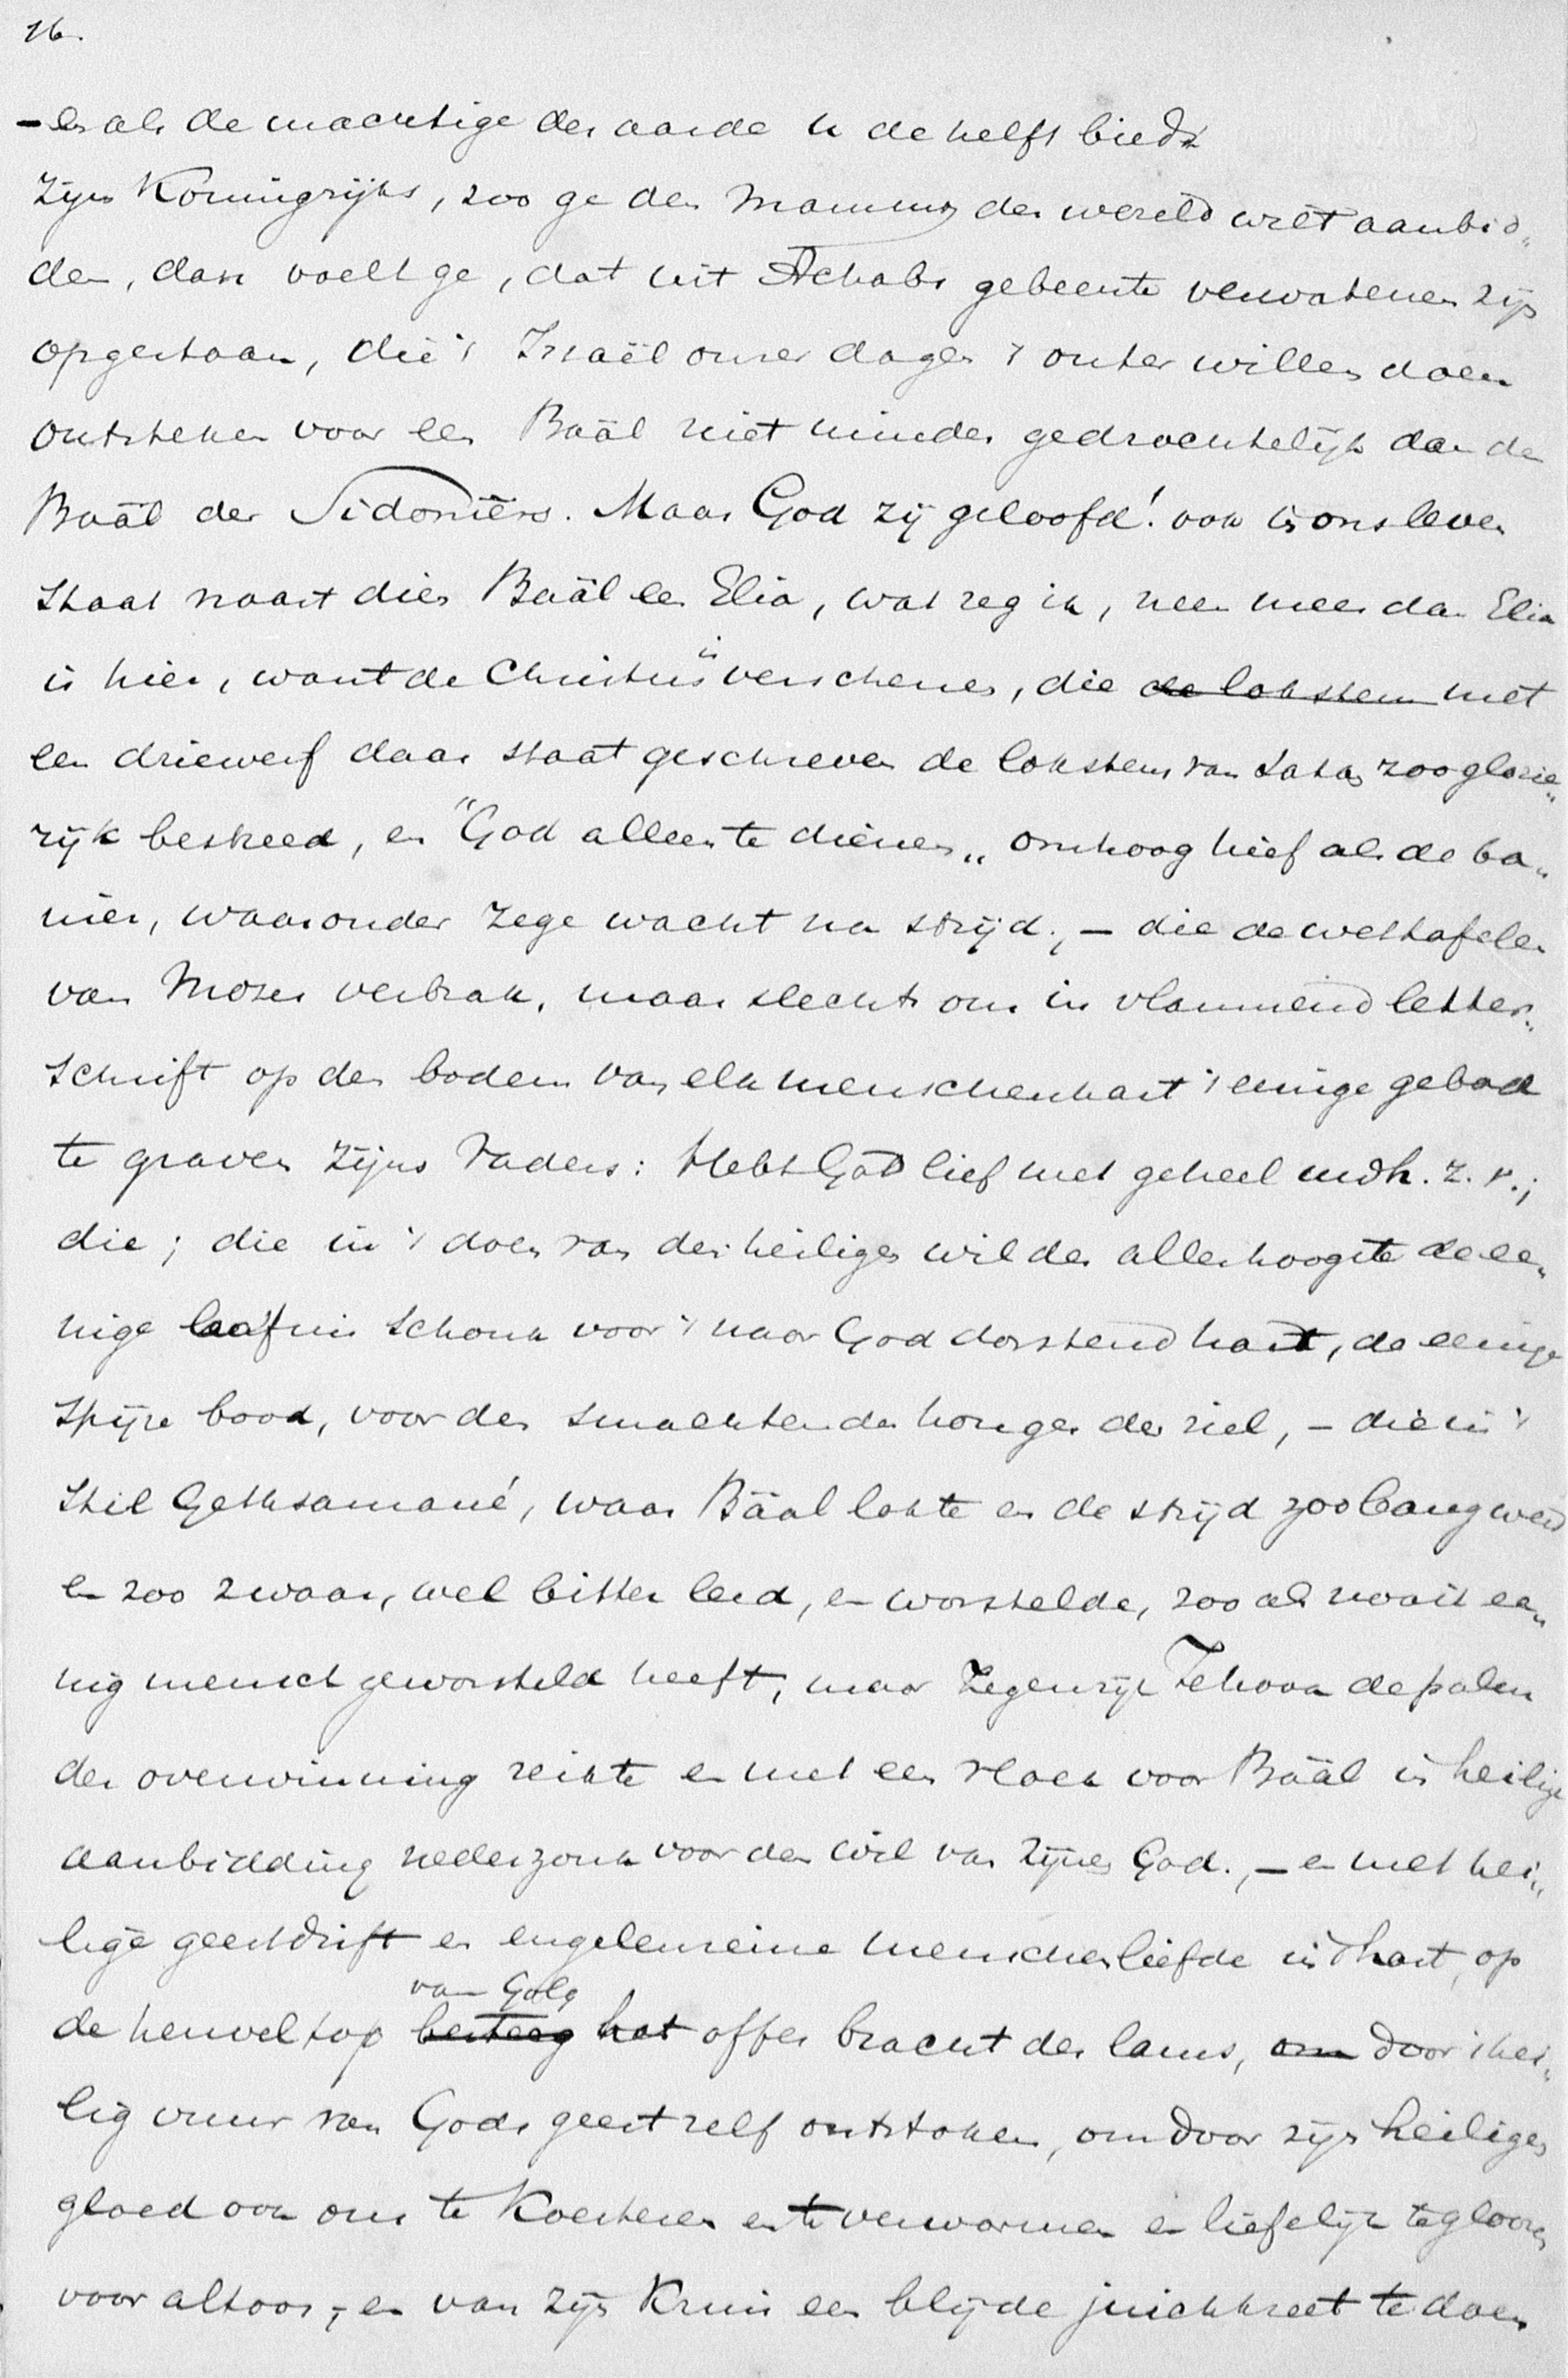 16.
– en als de machtige der aarde u de helft biedt
zijns Koningrijks, zoo ge den Mammon der wereld wilt aanbid„
den, dan voelt ge, dat uit Achabs gebeente verwatenen zijn
opgestaan, die 't Israël onzer dagen 't outer willen doen
ontsteken voor een Baäl niet minder gedrochtelijk dan de
Baäl der Sidoniërs. Maar God zij geloofd! ook in ons leven
staat naast dien Baäl een Elia, wat zeg ik, neen meer dan Elia
is hier, want de Christus is verschenen, die de lokstem met
een driewerf daar staat geschreven de lokstem van Satan zoo glorie„
rijk bestreed, en "God alleen te dienen„ omhoog hief als de ba„
nier, waaronder zege wacht na strijd; – die de wettafelen
van Mozes verbrak, maar slechts om in vlammend letter„
schrift op den bodem van elk menschenhart 't eenige gebod
te graven zijns Vaders: Hebt God lief met geheel uw h. z. v.;
die; die in 't doen van den heiligen wil des allerhoogste de ee„
nige laafnis schonk voor 't naar God dorstend hart, de eenige
spijze bood, voor den smachtenden honger der ziel, – die in 't
stil Gethsamané, waar Bäal lokte en de strijd zoo bang werd
en zoo zwaar, wel bitter leed, en worstelde, zoo als nooit ee„
nig mensch geworsteld heeft, maar zegenrijk Jehova de palm
der overwinning reikte en met een vloek voor Bäal in heilige
aanbidding nederzonk voor den wil van zijnen God., – en met hei„
lige geestdrift en engelenreine menschenliefde in 't hart, op
de heuveltop besteeg van Golg het offer bracht des lams, om door 't hei„
lig vuur van Gods geest zelf ontstoken, om door zijn heiligen
gloed ook ons te Koesteren en te verwarmen en liefelijk te gloren
voor altoos, – en van zijn Kruis een blijde juichkreet te doen